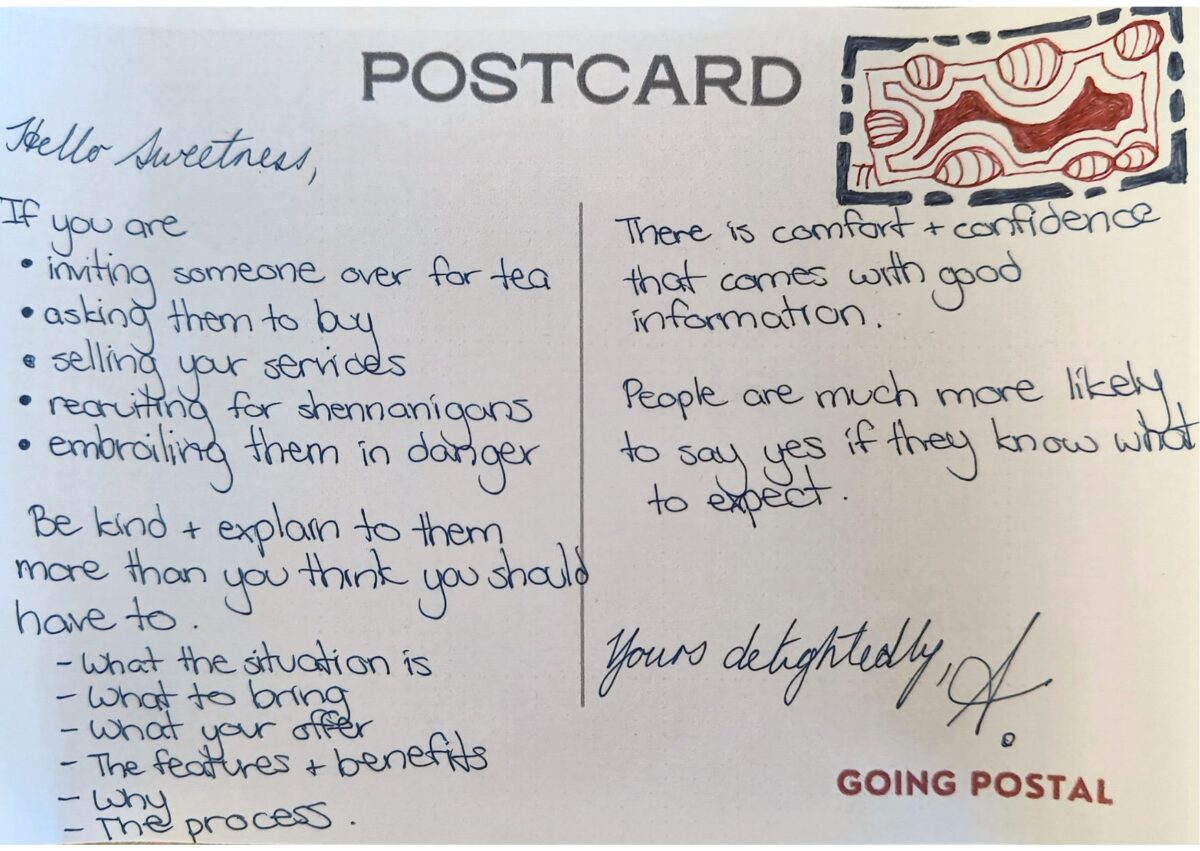 POSTCARD
Hello Sweetness,
If you are
• inviting someone over for tea
• asking them to buy
• selling your services
• recruiting for shennanigans
• embroiling them in danger
Be kind + explain to them
more than you think you should
have to.
- What the situation is
- What to bring
- What your offer
- The features + benefits
- Why
- The process.
There is comfort + confidence
that comes with good
information.
People are much more likely
to say yes if they know what
to expect.
Yours delightedly, A.
GOING POSTAL